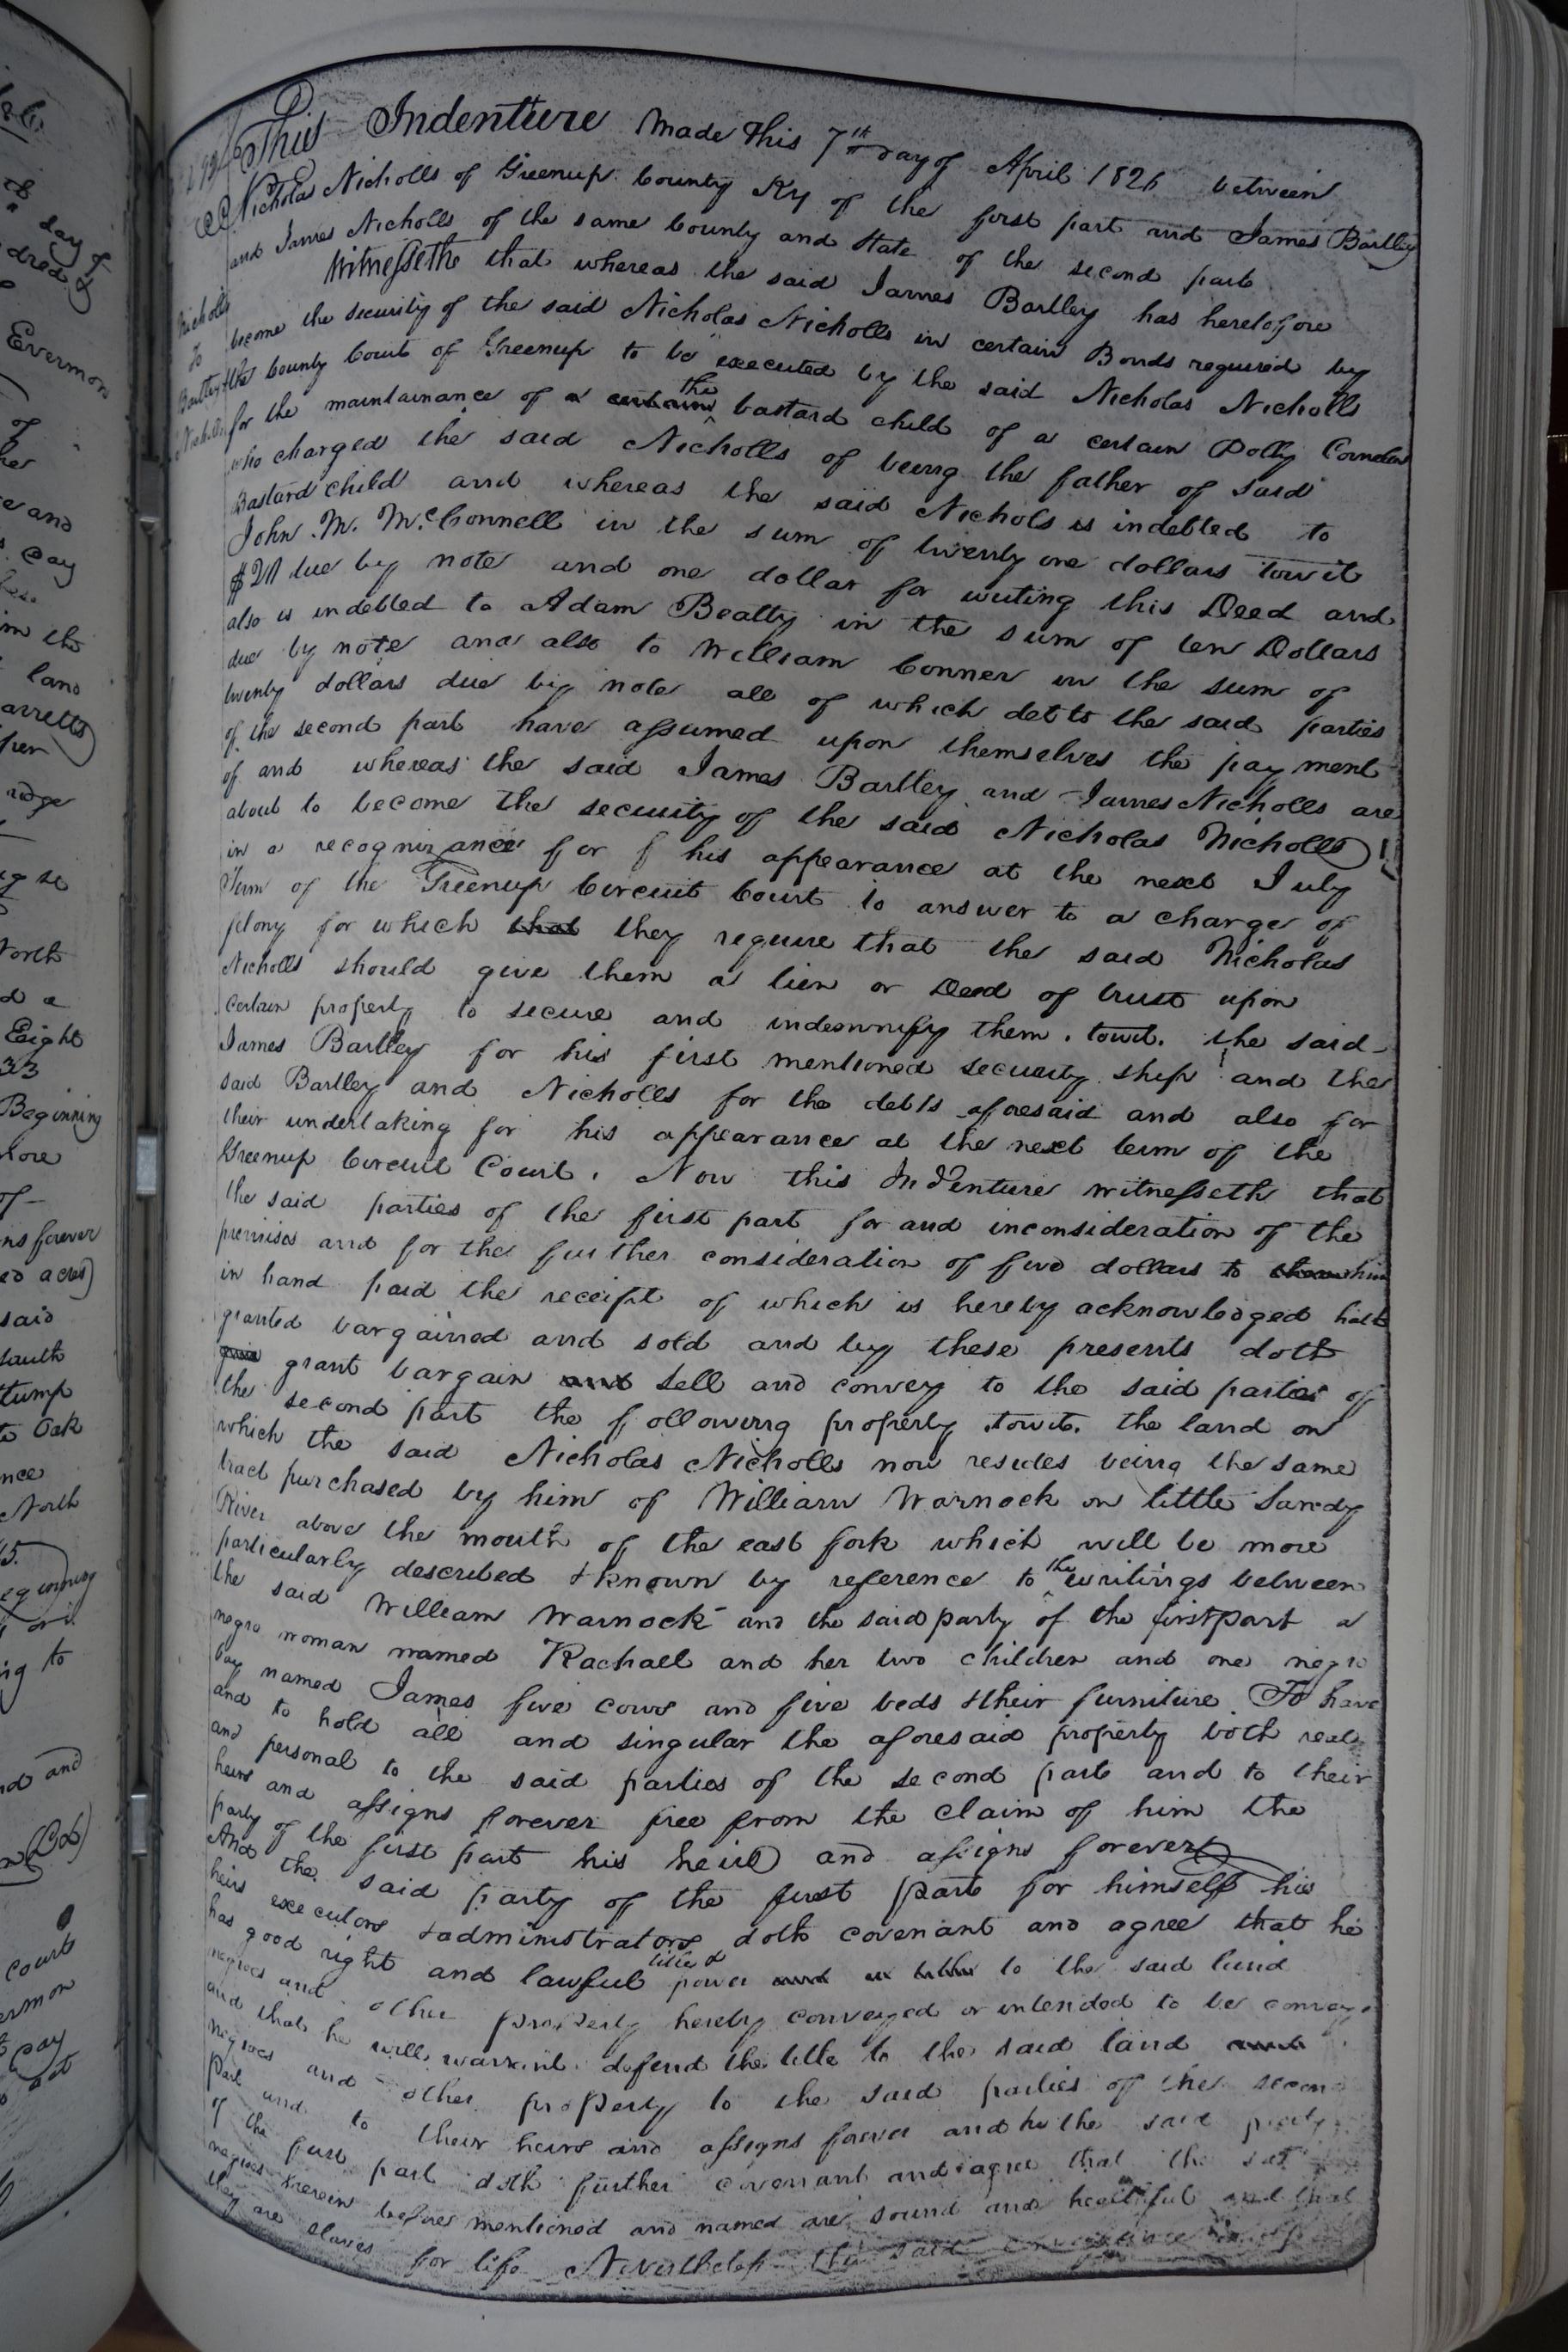 This Indenture Made This 7th day of April 1826 between
Nicholas Nicholls of Greenup County Ky of the first part and James Bartley
and James Nicholls of the same County and State of the second part
Witnesseth that whereas the said James Bartley has heretofore
become the security of the said Nicholas Nicholls in certain Bonds required by
the County Court of Greenup to be executed by the said Nicholas Nicholls
for the maintainance of a certain the bastard child of a certain Polly
who charged the said Nicholls of being the father of said
Bastard child and whereas the said Nichols is indebted to
John M. McConnell in the sum of twenty one dollars towit
due by note and one dollar for writing this Deed and
also is indebted to Adam Beatty in the sum of ten Dollars
due by note and also to William Conner in the sum of
twenty dollars due by note all of which debts the said parties
of the second part have assumed upon themselves the payment
of and whereas the said James Bartley and James Nicholls are
about to become the security of the said Nicholas Nicholls
in a recognizance for his appearance at the next July
Term of the Greenup Circuit Court to answer to a charge of
felony for which that they require that the said Nicholas
Nicholls should give them a lien or Deed of trust upon
certain property to secure and indemnify them. towit. the said
James Bartley for his first mentioned security ship and the
said Bartley and Nicholls for the debts aforesaid and also for
their undertaking for his appearance at the next term of the
Greenup Circuit Court. Now this Indenture witnesseth that
the said parties of the first part for and inconsideration of the
premises and for the further consideration of five dollars to them him
in hand paid the receipt of which is hereby acknowledged hath
granted bargained and sold and by these presents doth
grant bargain and sell and convey to the said parties of
the second part the following property .towit. the land on
which the said Nicholas Nicholls now resides being the same
tract purchased by him of William Warnock on little Sandy
River above the mouth of the east fork which will be more
particularly described & known by reference to the writings between
the said William Warnock and the said party of the first part a
negro woman named Rachael and her two children and one negro
boy named James five cows and five beds & their furniture To have
and to hold all and singular the aforesaid property both real
and personal to the said parties of the second part and to their
heirs and assigns forever free from the claim of him the
party of the first part his heirs and assigns forever
And the said party of the first part for himself his
heirs executors & administrators doth covenant and agree that he
has good right and lawful title & power and to the said land
negroes and other property hereby conveyed or intended to be
and that he will warrant defend the title to the said land and
negroes and other property to the said parties of the second
part and to their heirs and assigns forever and he the said party
of the first part doth further covenant and agree that the
negroes herein before mentioned and named are sound and healthful and that
they are slaves for life Nevertheless the said
Nicholls
To
Bartley &
Nicholls